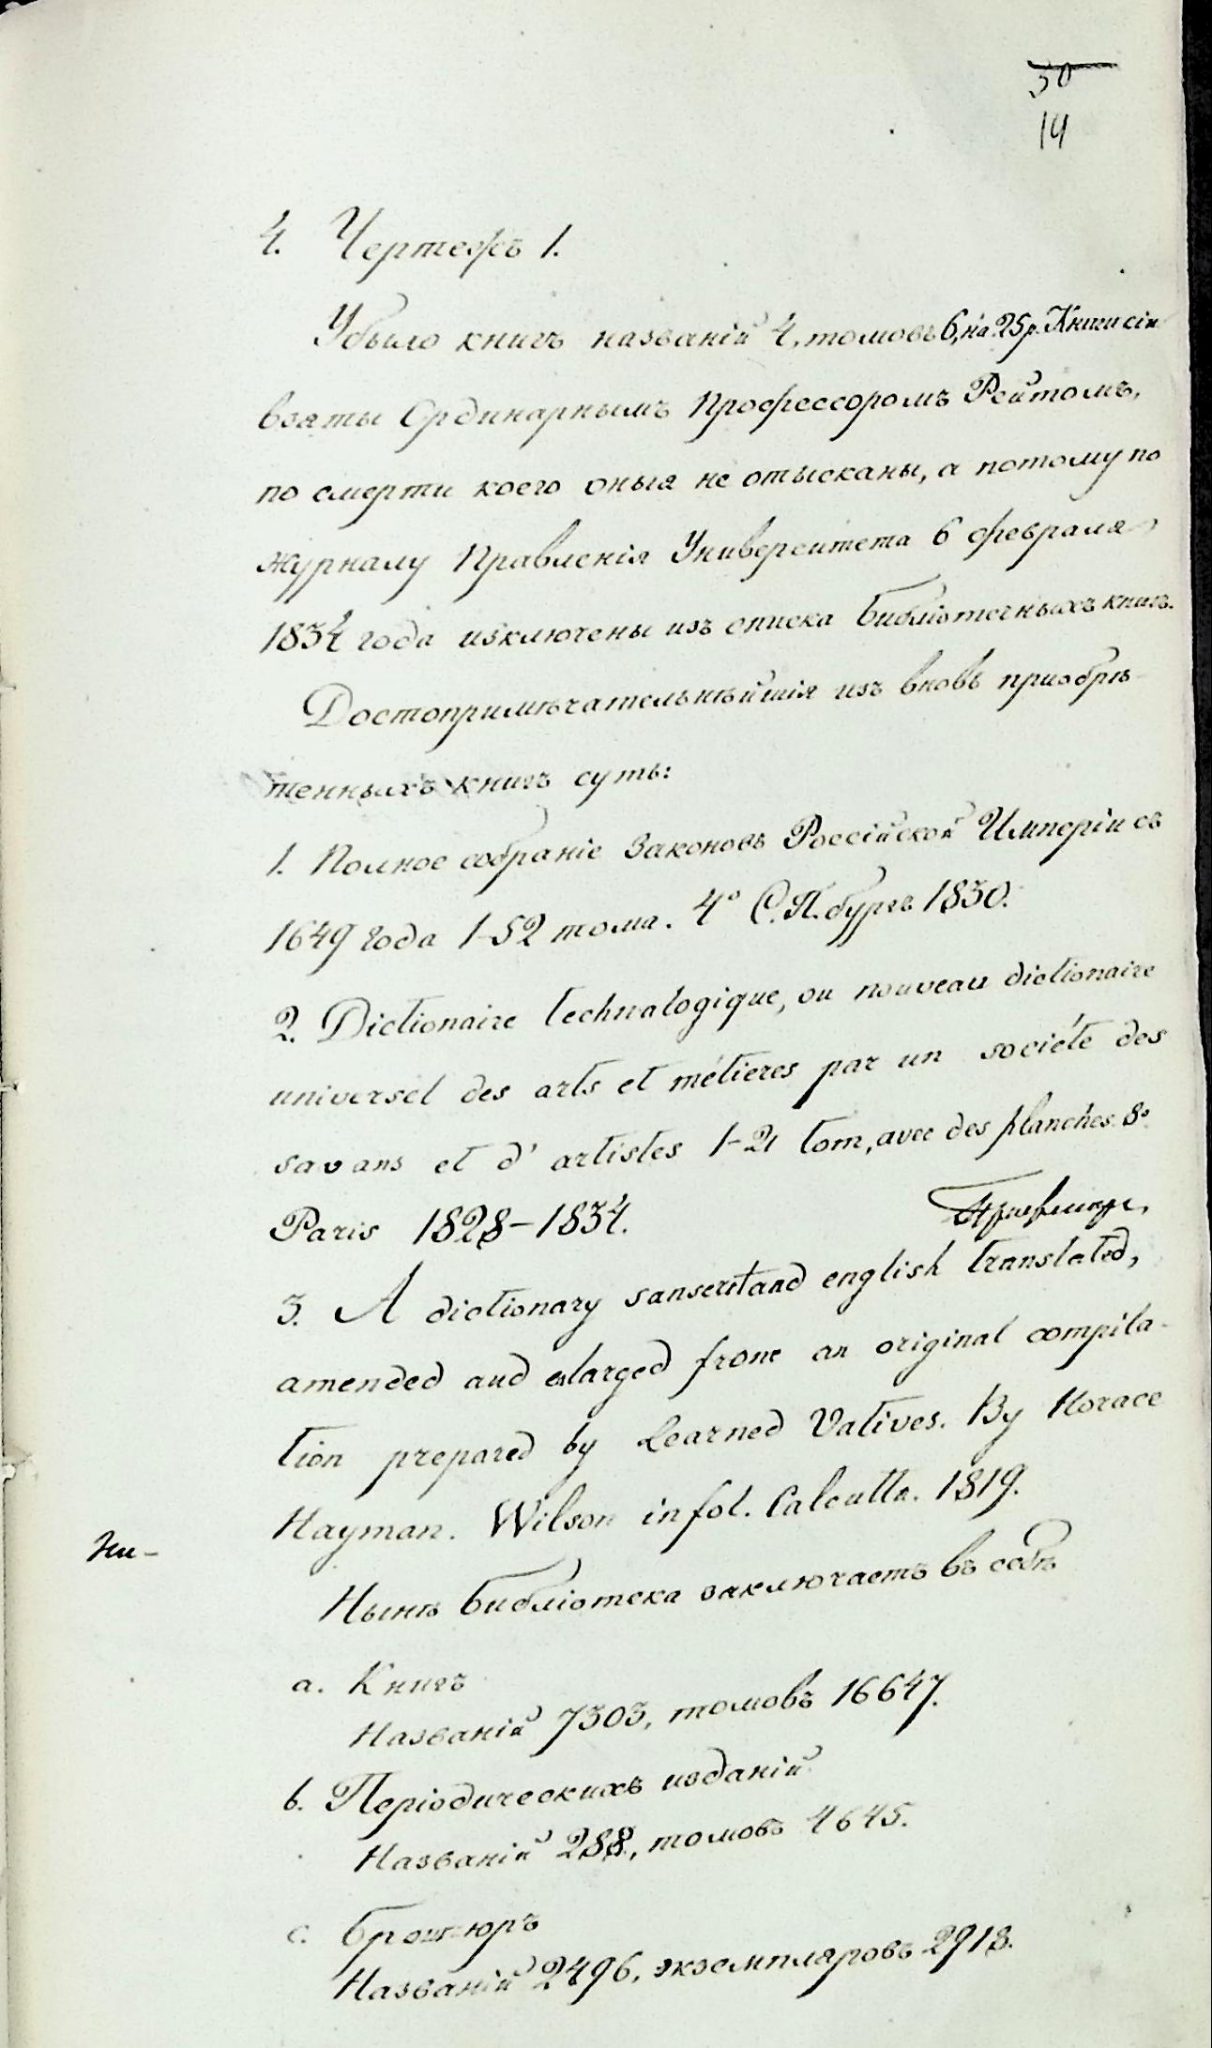 30
14
4. Чертежъ 1.
Убыло книгъ названій 4, томовъ 6, на 25 р. Книги сіи
взяты Ординарнымъ Профессоромъ Рейтомъ,
по смерти коего оныя не отысканы, а потому по
журналу Правленія Университета 6 февраля
1834 года изключены изъ списка библіотечныхъ книгъ.
Достопримѣчательнѣйшія изъ вновь приобрѣ-
тенныхъ книгъ суть:
1. Полное собраніе Законовъ Россійской Имперіи съ
1649 года 1-52 тома. 4° С.П.бургъ 1830.
2. Dictionaire technalogique, ou nouveau dictionaire
universel des arts et métieres par un société des
savans et d' artistes 1-21 tom, avec des planches. 8°
Paris 1828-1834.
3. A dictionary sanscrit and english translated,
amended and enlarged frome an original compila-
tion prepared by Learned Vatives. By Horace
Hayman. Wilson in fol. Calcutta. 1819.
Нынѣ библіотека заключаетъ въ себѣ
a. Книгъ
Названій 7303, томовъ 16647.
b. Періодическихъ изданій
Названій 288, томовъ 4645.
c. Брошюръ
Названій 2496, экземпляровъ 2918.